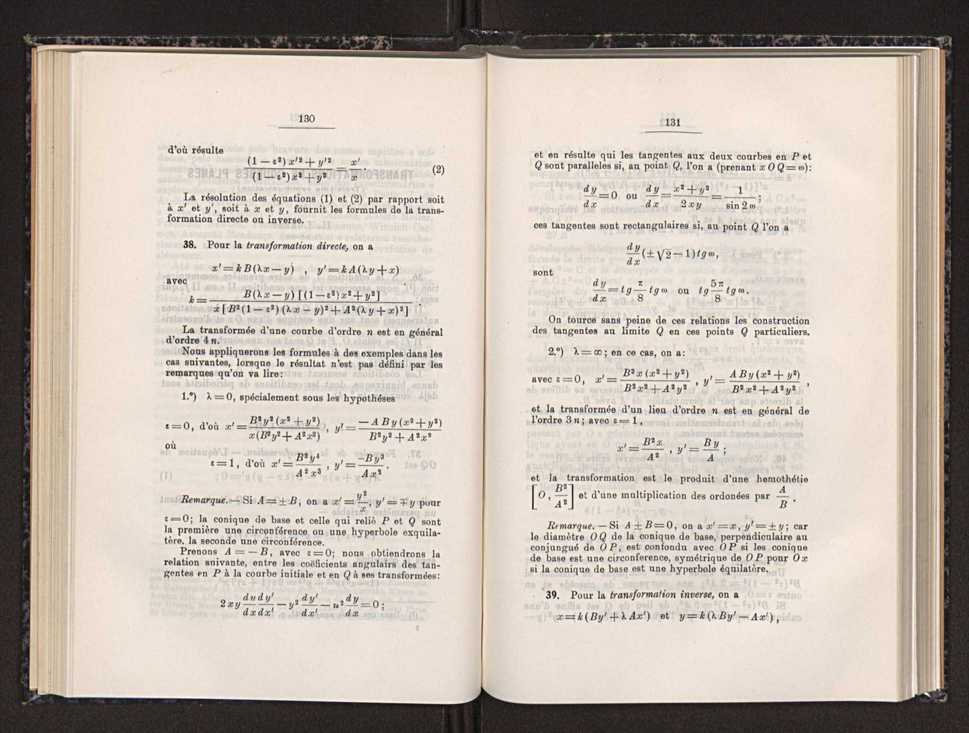 130
d'où résulte
(1 — ε²) x'² + y'² / (1 — ε²) x² + y² = x' / x (2)
La résolution des équations (1) et (2) par rapport soit
à x' et y', soit à x et y, fournit les formules de la trans-
formation directe ou inverse.
38. Pour la transformation directe, on a
x' = k B (λx — y) , y' = k A (λy + x)
avec
k = B (λx — y) [(1 — ε²) x² + y²] / x [B² (1 — ε²) (λx — y)² + A² (λy + x)²] .
La transformée d'une courbe d'ordre n est en général
d'ordre 4 n.
Nous appliquerons les formules à des exemples dans les
cas suivantes, lorsque le résultat n'est pas défini par les
remarques qu'on va lire:
1.º) λ = 0, spécialement sous les hypothéses
ε = 0, d'où x' = B² y² (x² + y²) / x (B² y² + A² x²) , y' = — A B y (x² + y²) / B² y² + A² x²
où
ε = 1, d'où x' = B² y⁴ / A² x³ , y' = — B y³ / A x² .
Remarque. — Si A = ± B, on a x' = y² / x , y' = ∓ y pour
ε = 0; la conique de base et celle qui relie P et Q sont
la première une circonférence ou une hyperbole exquila-
tère, la seconde une circonférence.
Prenons A = — B, avec ε = 0; nous obtiendrons la
relation suivante, entre les coëficients angulairs des tan-
gentes en P à la courbe initiale et en Q à ses transformées:
2 x y dy/dx dy'/dx' — y² dy'/dx' — x² dy/dx = 0;
131
et en résulte qui les tangentes aux deux courbes en P et
Q sont paralleles si, au point Q, l'on a (prenant x O Q = ω):
dy/dx = 0 ou dy/dx = x² + y² / 2 x y = 1 / sin 2 ω ;
ces tangentes sont rectangulaires si, au point Q l'on a
dy/dx (± √2 — 1) tg ω,
sont
dy/dx = tg π/8 tg ω ou tg 5π/8 tg ω.
On tource sans peine de ces relations les construction
des tangentes au limite Q en ces points Q particuliers.
2.º) λ = ∞; en ce cas, on a:
avec ε = 0, x' = B² x (x² + y²) / B² x² + A² y² , y' = A B y (x² + y²) / B² x² + A² y² ,
et la transformée d'un lieu d'ordre n est en général de
l'ordre 3 n; avec ε = 1,
x' = B² x / A² , y' = B y / A ;
et la transformation est le produit d'une hemothétie
[O, B² / A²] et d'une multiplication des ordonées par A / B .
Remarque. — Si A ± B = 0, on a x' = x, y' = ± y; car
le diamètre O Q de la conique de base, perpendiculaire au
conjungué de O P, est confondu avec O P si les conique
de base est une circonference, symétrique de O P pour O x
si la conique de base est une hyperbole équilatère.
39. Pour la transformation inverse, on a
x = k (B y' + λ A x') et y = k (λ B y' — A x') ,